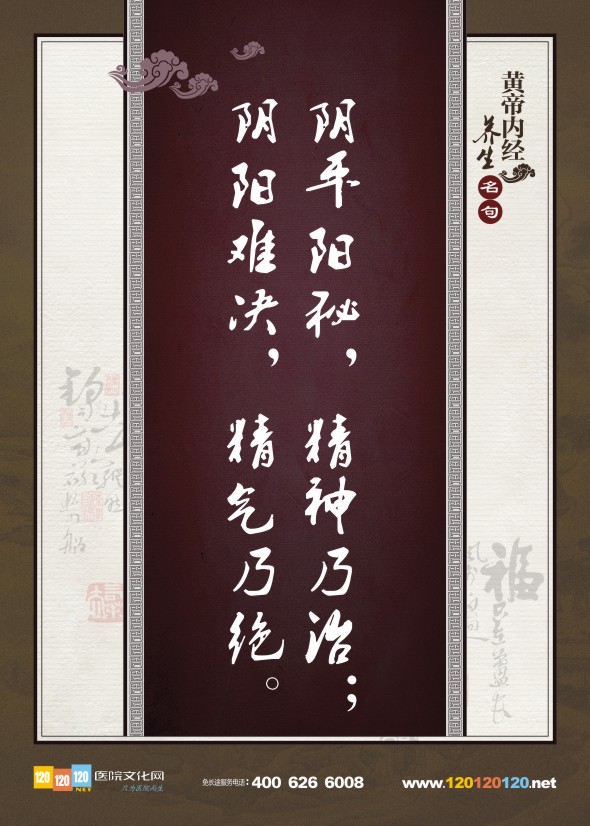 黄帝内经
养生
名句
阴平阳秘，精神乃治；
阴阳难决，精气乃绝。
120 120 120 .NET
医院文化网
只为医院而生
免长途服务电话：400 626 6008
www.120120120.net
福